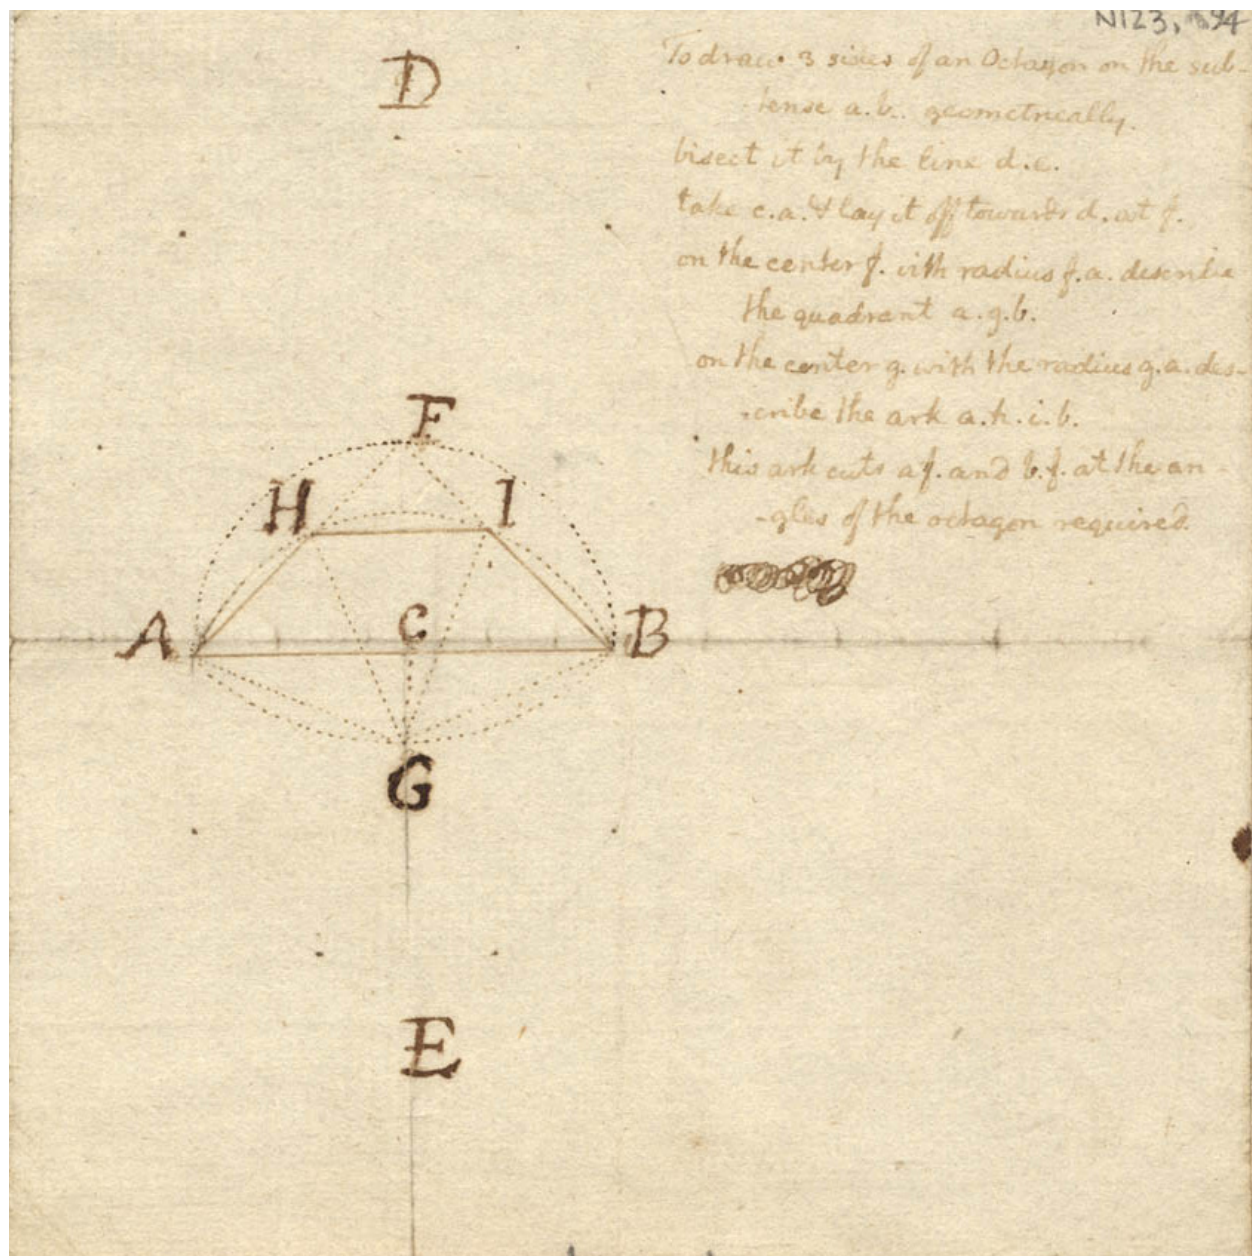 N123,
To draw 3 sides of an Octagon on the sub-
tense a.b. geometrically.
bisect it by the line d.e.
take c.a. & lay it off towards d. at f.
on the center f. with radius f.a. describe
the quadrant a.g.b.
on the center g. with the radius g.a. des-
cribe the ark a.h.i.b.
this ark cuts a f. and b.f. at the an-
-gles of the octagon required.
D
F
H I
A C B
G
E